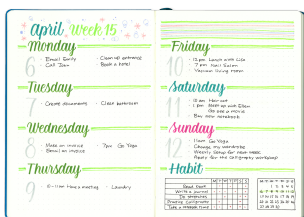 April Week 15
Monday
6
· Email Emily
· Call Dan
· Clean up entrance
· Book a hotel
Tuesday
7
· Create documents
· Clean bathroom
Wednesday
8
· Make an invoice
· Email an invoice
7pm Go Yoga
Thursday
9
· 10-11am Have a meeting
· Laundry
Friday
10
· 12 pm Lunch with Lisa
· 7 pm Nail Salon
· Vacuum living room
Saturday
11
· 10am Hair cut
· 1 pm Meet up with Ellen
Go see a movie
· Buy new notebook
Sunday
12
· 11am Go Yoga
· Change my wardrobe
· Weekly setup for next week
· Apply for the calligraphy workshop
Habit
M T W T F S S
Read book
Write a journal
Do stretches
Practice calligraphy
Take a vitamin